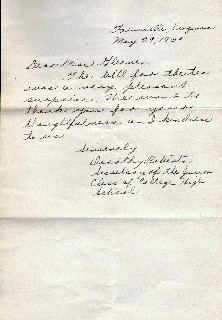 Farmville, Virginia
May 29, 1930
Dear Mrs.
The bill for the tea
was a very pleasant
surprise. We want to
thank you for your
thoughtfulness and kindness
to us
Sincerely
Dorothy Roberts,
Secretary of the Junior
Class of College High
School